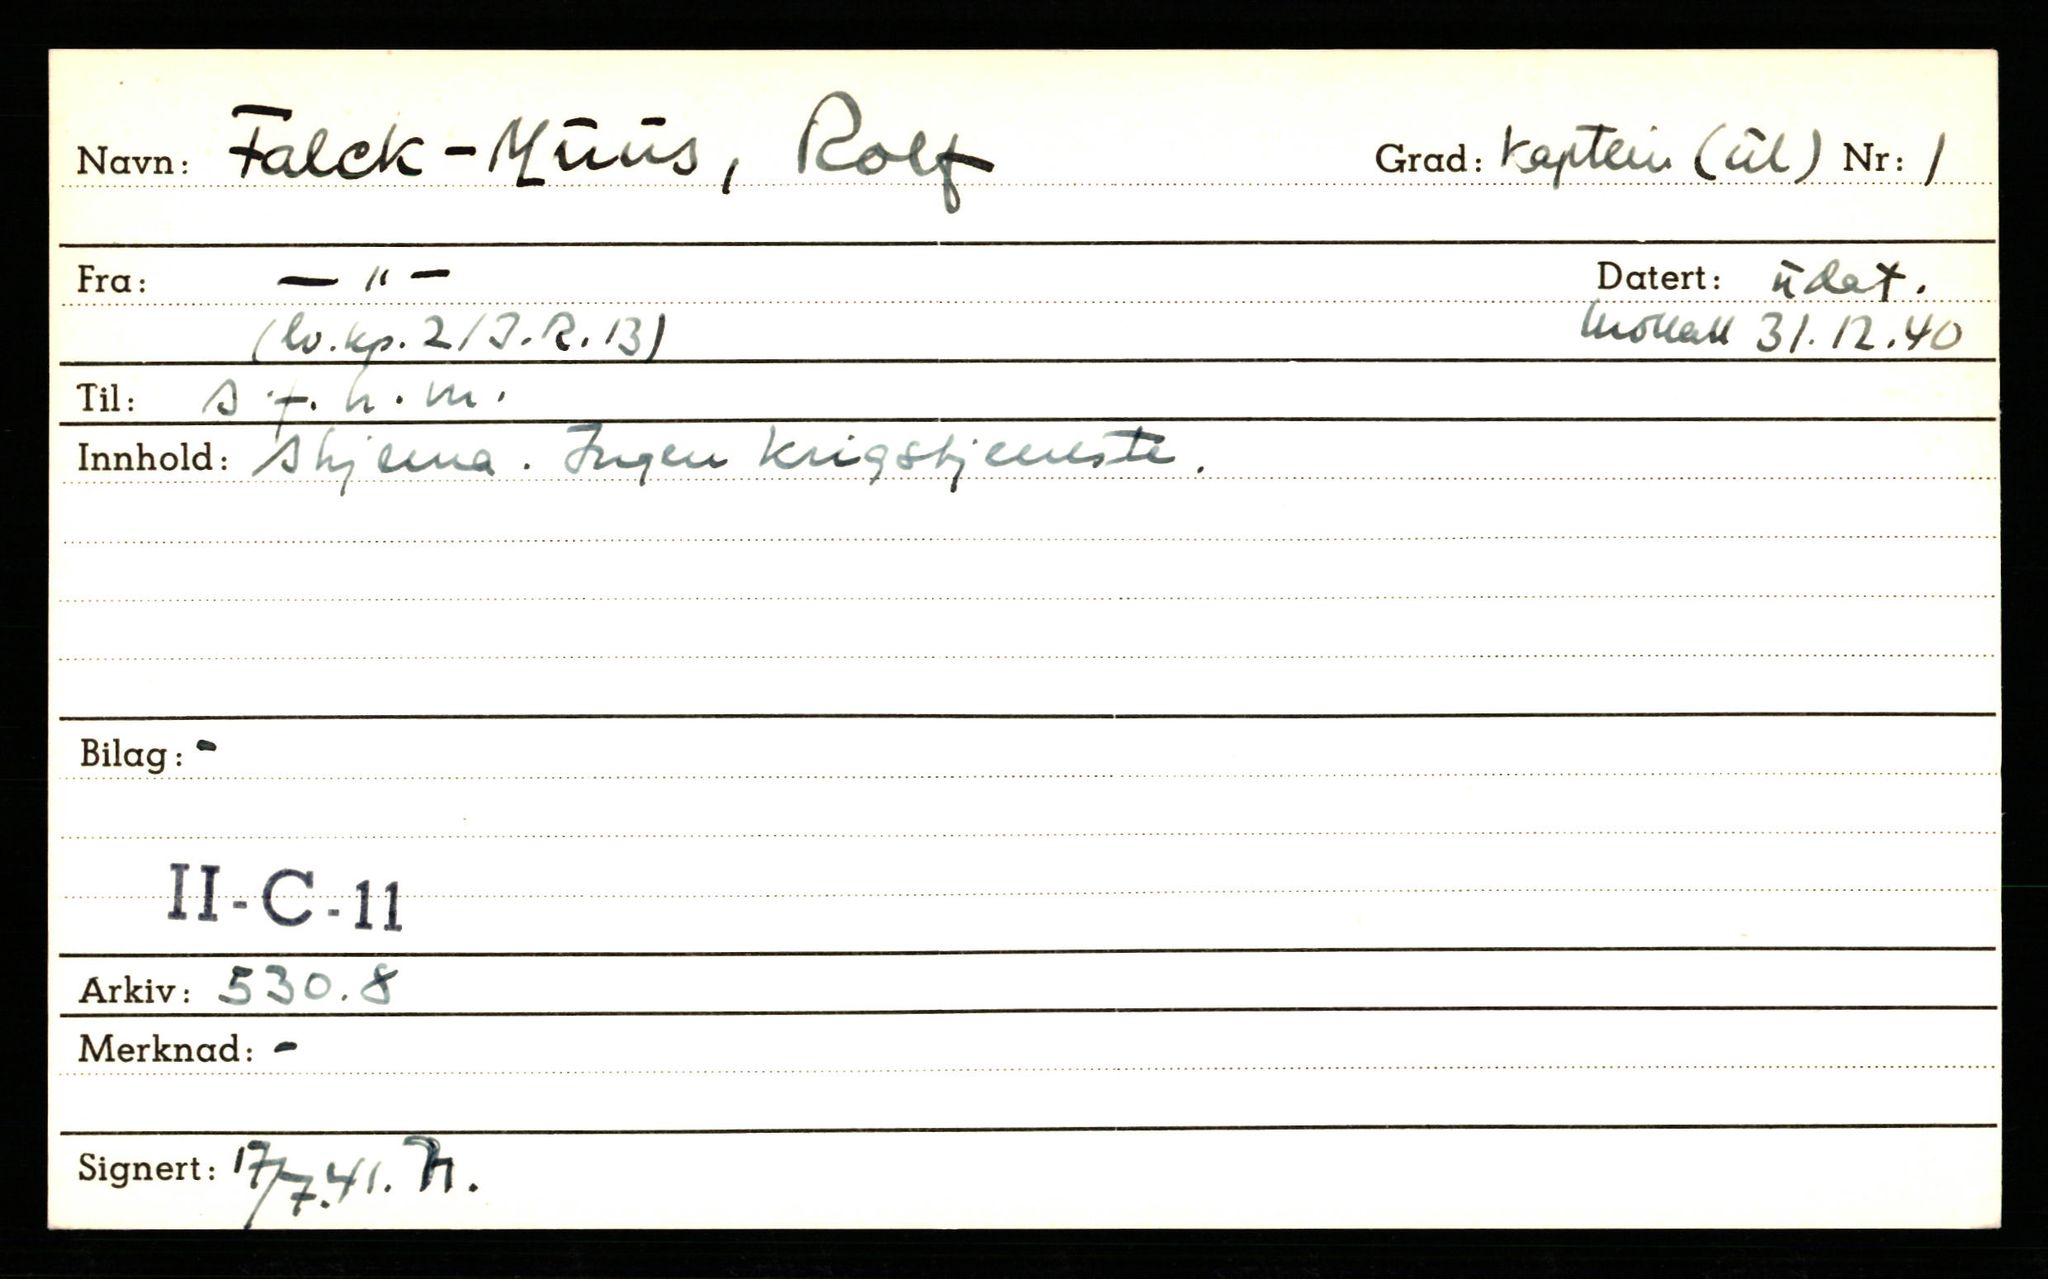 Navn: Falck-Muus, Rolf Grad: Kaptein (ul) Nr: 1
Fra: — " — Datert: udat.
(lv.kp. 2/I.R. 13) Mottatt 31.12.40
Til: s.f.h.m.
Innhold: Skjema. Ingen krigstjeneste.
Bilag: -
II-C-11
Arkiv: 530.8
Merknad: -
Signert: 17/7.41.